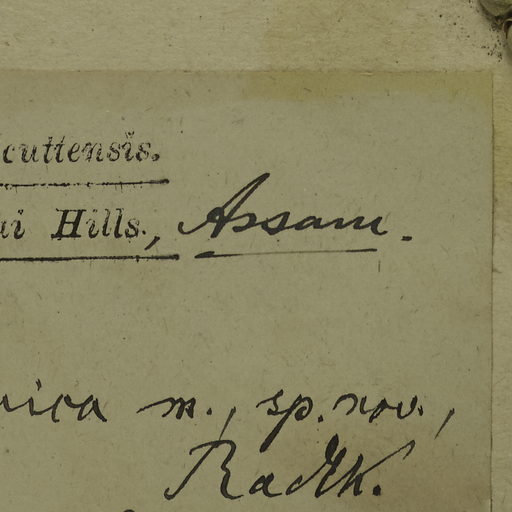 cuttensis.
Hills., Assam.
nica m., sp. nov.,
Radlk.